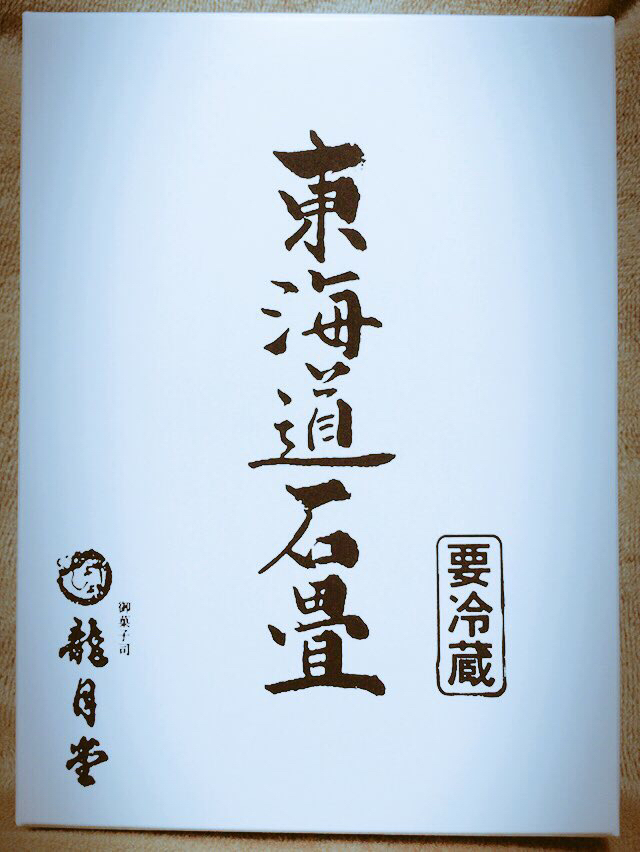 東海道石畳
要冷蔵
御菓子司
龍月堂